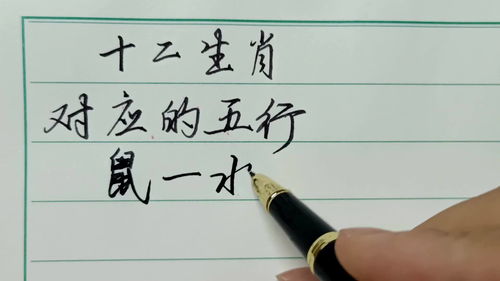 十二生肖
对应的五行
鼠一水